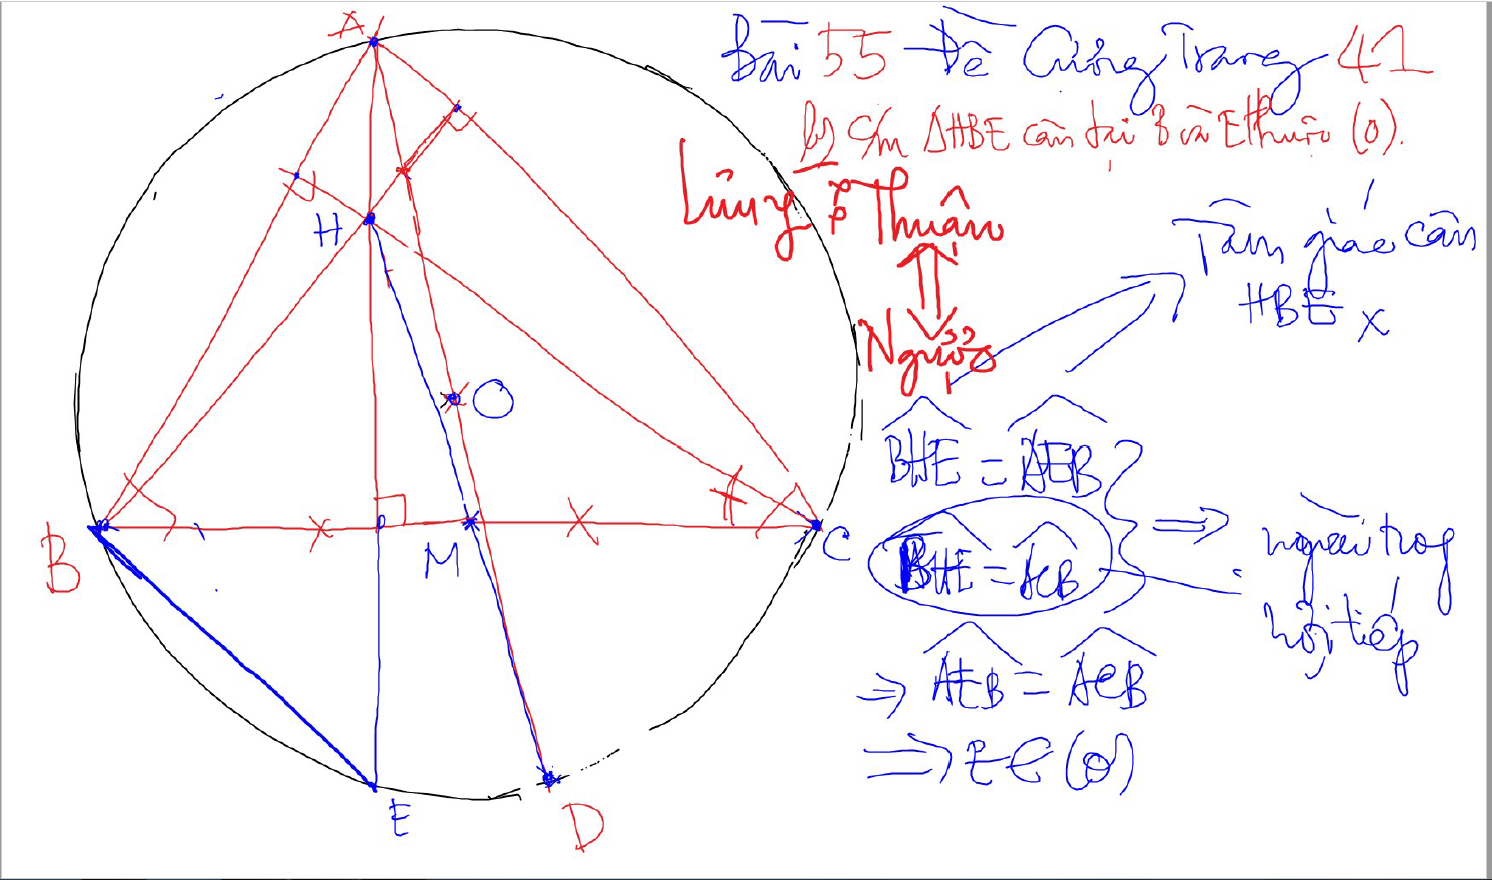 Bài 55 Đề Cương Trang 41
b) c/m ΔHBE cân tại B và E thuộc (O).
Lưu ý : Thuận
Ngược
Tam giác cân
HBE
BHE = AEB
BHE = ACB
⇒
nội tiếp
⇒ AEB = ACB
⇒ E ∈ (O)
A
H
O
B
M
C
E
D